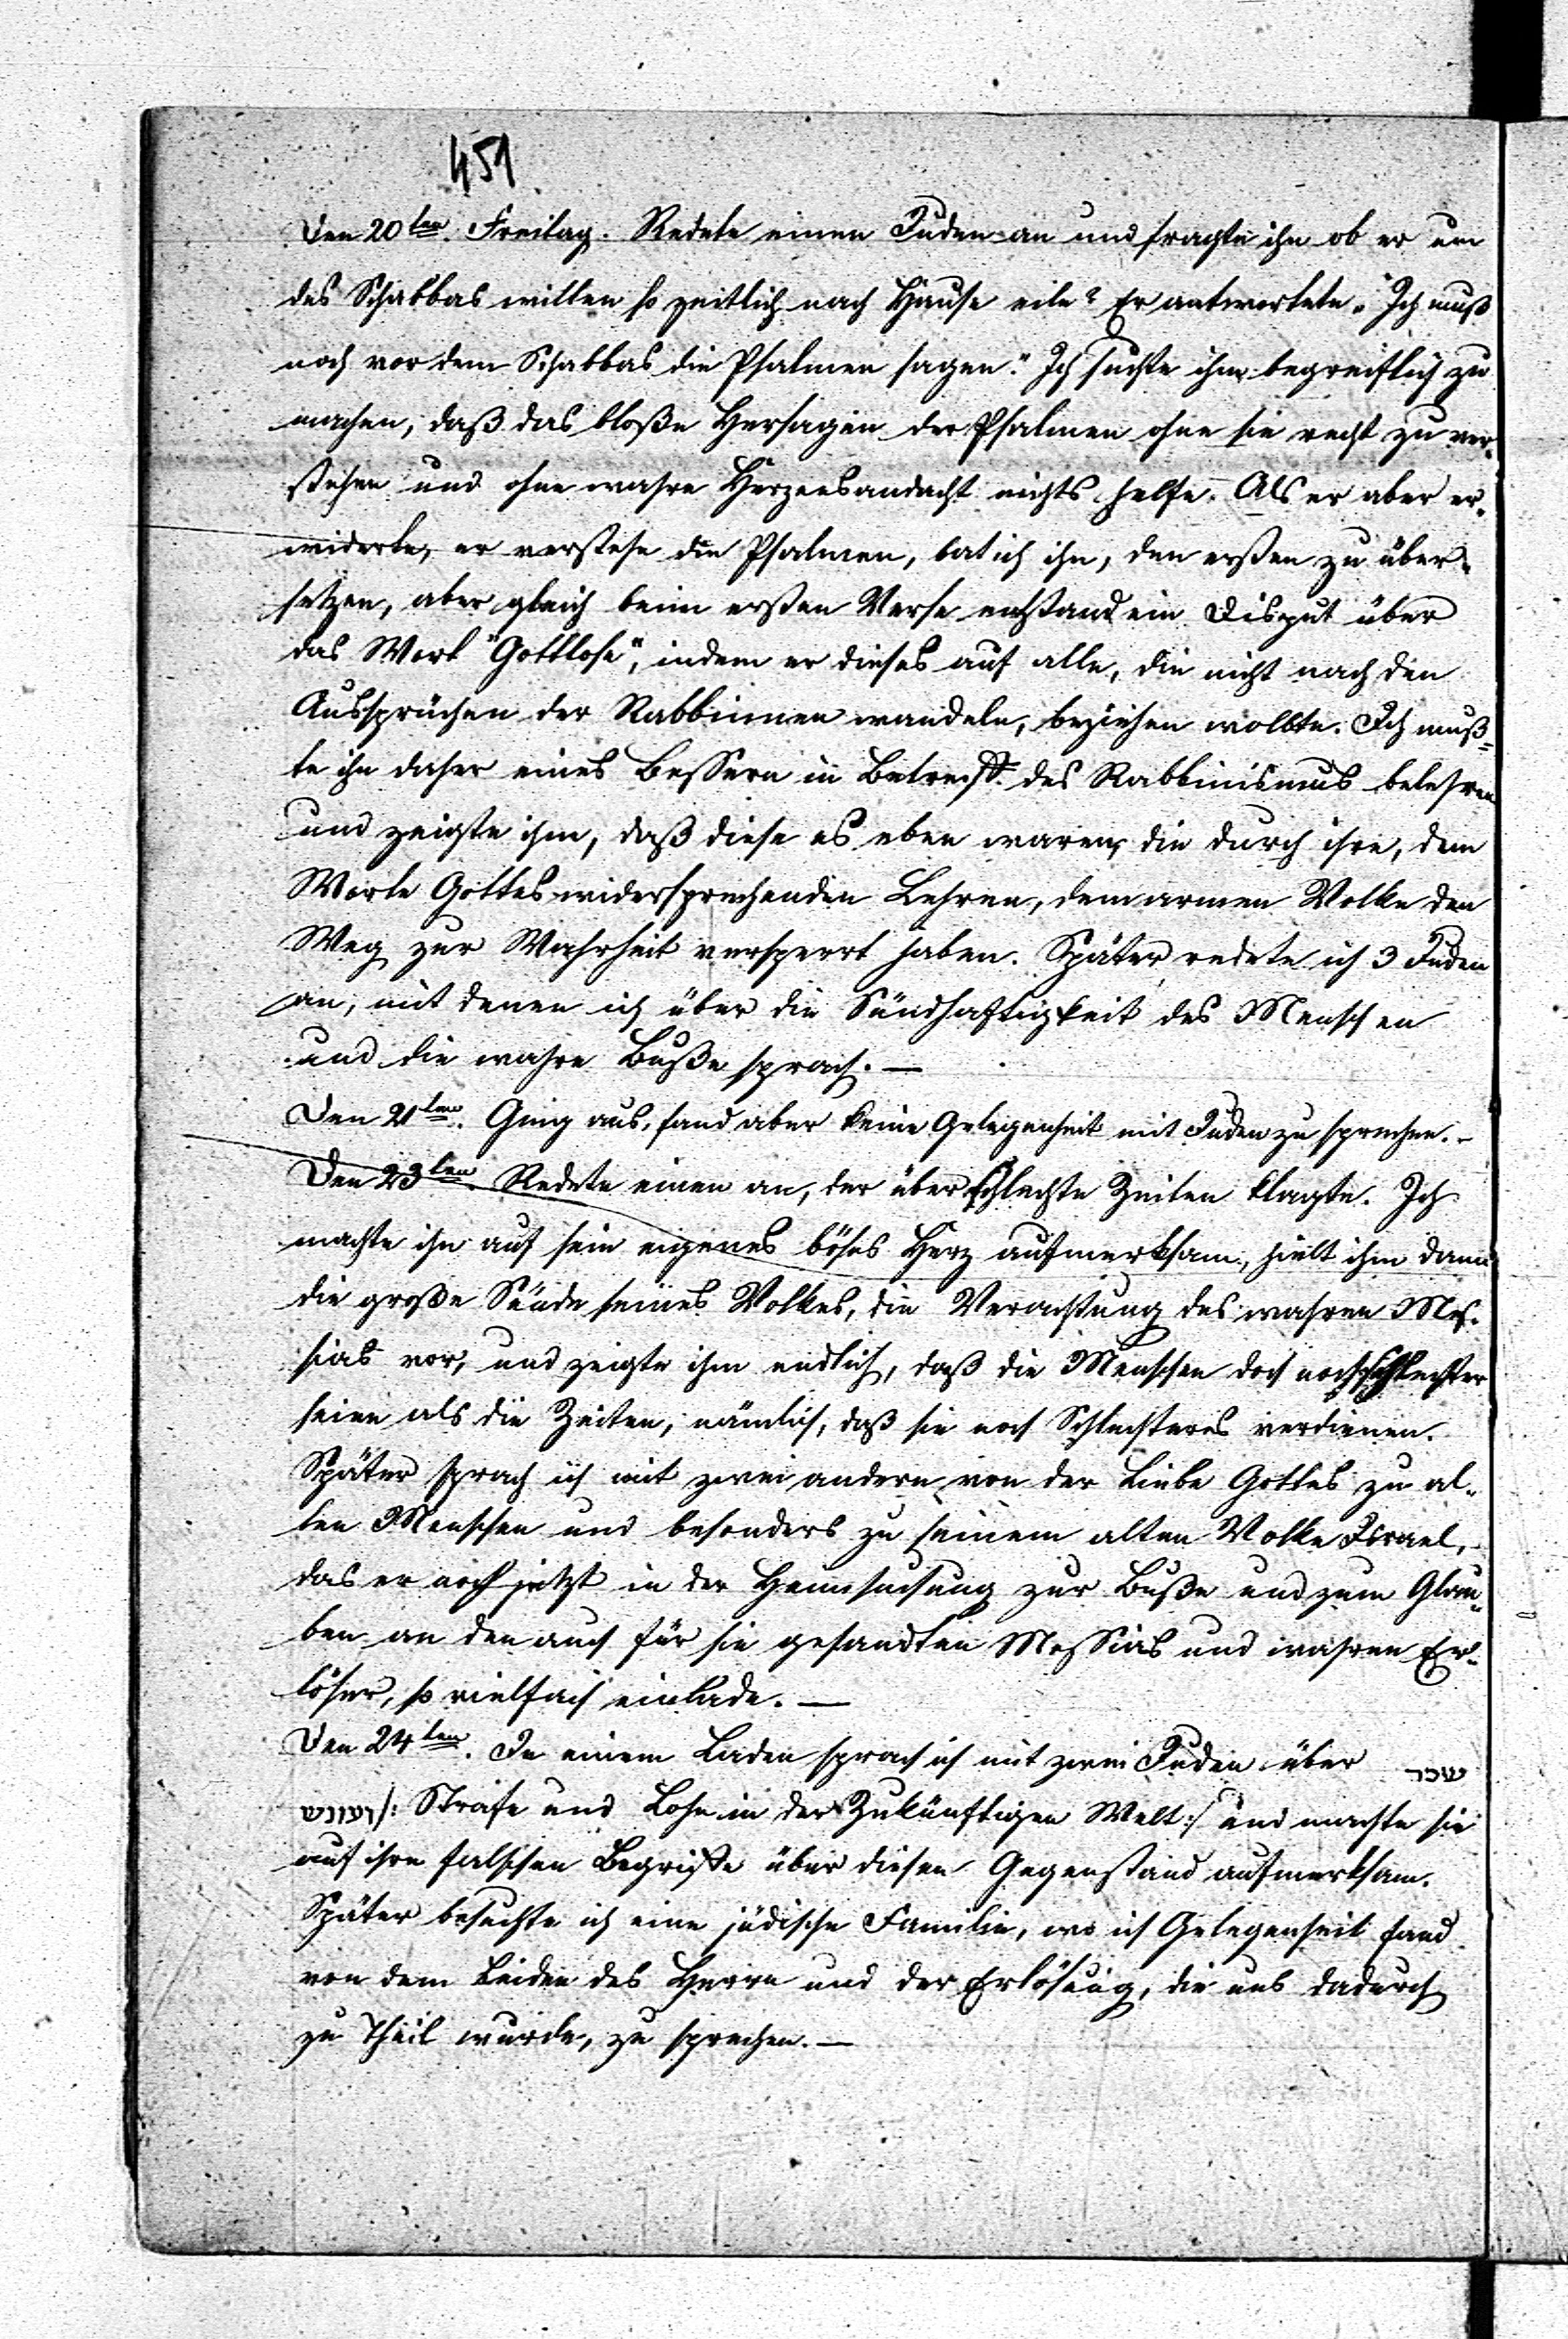 451
Den 20ten. Freitag. Redete einen Juden an und fragte ihn ob er um
des Schabbas willen so zeitlich nach Hause eile? Er antwortete „Ich muß
noch vor dem Schabbas die Psalmen sagen." Ich suchte ihm begreiflich zu
machen, daß das bloße Hersagen der Psalmen ohne sie recht zu ver-
stehen und ohne wahre Herzensandacht nichts helfe. Als er aber er-
widerte, er verstehe die Psalmen, bat ich ihn, den ersten zu über-
setzen, aber gleich beim ersten Verse entstand ein Disput über
das Wort "Gottlose", indem er dieses auf alle, die nicht nach den
Aussprüchen der Rabbinnen wandeln, beziehen wollte. Ich muß-
te ihn daher eines Bessern in Betreff des Rabbinismus belehren
und zeigte ihm, daß diese es eben waren, die durch ihre, dem
Worte Gottes widersprechenden Lehren, dem armen Volke den
Weg zur Wahrheit versperrt haben. Später redete ich 3 Juden
an, mit denen ich über die Sündhaftigkeit des Menschen
und die wahre Buße sprach. —
Den 21ten. Ging aus, fand aber keine Gelegenheit mit Juden zu sprechen. –
Den 23ten. Redete einen an, der über schlechte Zeiten klagte. Ich
machte ihn auf sein eigenes böses Herz aufmerksam, hielt ihm dann
die große Sünde seines Volkes, die Verachtung des wahren Mes-
sias vor, und zeigte ihm endlich, daß die Menschen doch noch schlechter
seien als die Zeiten, nämlich, daß sie noch Schlechteres verdienen.
Später sprach ich mit zwei andern von der Liebe Gottes zu al-
len Menschen und besonders zu seinem alten Volke Israel,
das er noch jetzt in der Heimsuchung zur Buße und zum Glau-
ben an den auch für sie gesandten Messias und wahren Er-
löser, so vielfach einlade. —
Den 24ten. In einem Laden sprach ich mit zwei Juden über שכר
ועונש /: Strafe und Lohn in der Zukünftigen Welt :/ und machte sie
auf ihre falschen Begriffe über diesen Gegenstand aufmerksam.
Später besuchte ich eine jüdische Familie, wo ich Gelegenheit fand
von dem Leiden des Herrn und der Erlösung, die uns dadurch
zu Theil wurde, zu sprechen. —